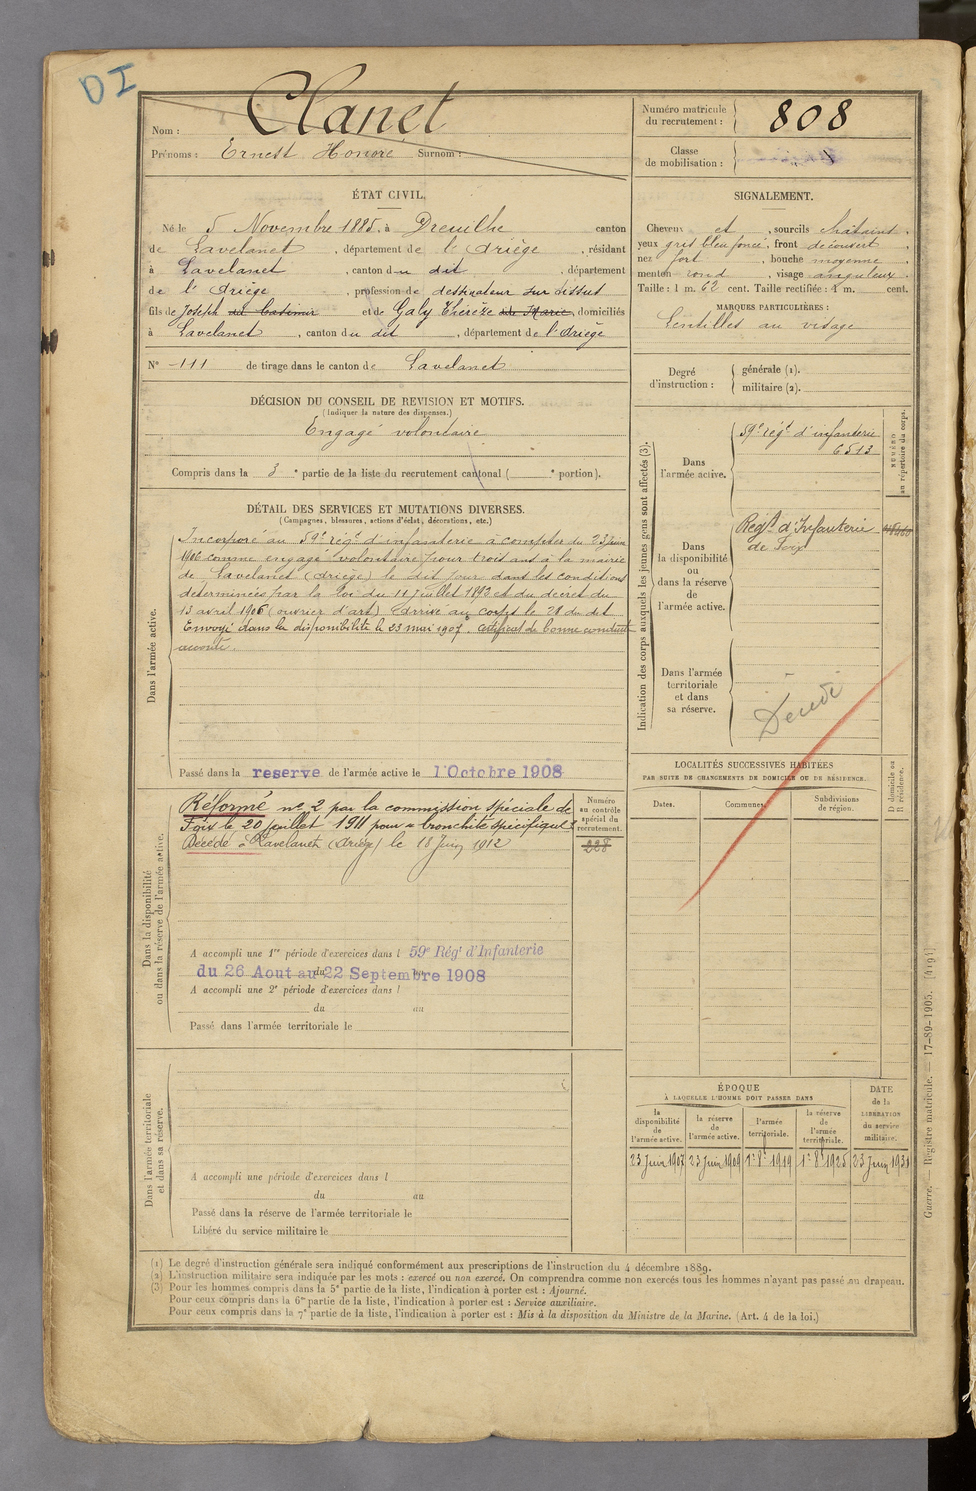 DI
Nom : Clanet
Prénoms : Ernest Honoré Surnom :
Numéro matricule du recrutement : 808
Classe de mobilisation :
ÉTAT CIVIL.
Né le 5 Novembre 1885, à Dreuilhe canton
de Lavelanet, département de l'Ariège, résidant
à Lavelanet, canton du dit, département
de l'Ariège, profession de dessinateur sur tissus
fils de Joseph dit Casimir et de Galy Thérèze dite Marie, domiciliés
à Lavelanet, canton du dit, département de l'Ariège
N° 111 de tirage dans le canton de Lavelanet
SIGNALEMENT.
Cheveux et, sourcils châtains,
yeux gris bleu foncé, front découvert,
nez fort, bouche moyenne,
menton rond, visage anguleux.
Taille : 1 m. 62 cent. Taille rectifiée : 1 m. cent.
MARQUES PARTICULIÈRES :
Lentilles au visage
Degré d'instruction : générale (1).
militaire (2).
DÉCISION DU CONSEIL DE REVISION ET MOTIFS.
(Indiquer la nature des dispenses.)
Engagé volontaire
Compris dans la 3e partie de la liste du recrutement cantonal ( e portion).
DÉTAIL DES SERVICES ET MUTATIONS DIVERSES.
(Campagnes, blessures, actions d'éclat, décorations, etc.)
Dans l'armée active.
Incorporé au 59e régt d'infanterie à compter du 23 juin
1906 comme engagé volontaire pour trois ans à la mairie
de Lavelanet (Ariège) le dit jour dans les conditions
déterminées par la loi du 11 juillet 1892 et du décret du
13 avril 1906 (ouvrier d'art) Arrivé au corps le 24 du dit
Envoyé dans la disponibilité le 23 mai 1907. Certificat de bonne conduite
accordé.
Passé dans la reserve de l'armée active le 1 Octobre 1908
Dans la disponibilité ou dans la réserve de l'armée active.
Réformé no 2 par la commission spéciale de
Foix le 20 juillet 1911 pour "bronchite spécifique"
Décédé à Lavelanet (Ariège) le 18 Juin 1912
Numéro au contrôle spécial du recrutement.
228
A accompli une 1re période d'exercices dans l 59e Régt d'Infanterie
du 26 Aout au 22 Septembre 1908
A accompli une 2e période d'exercices dans l
du au
Passé dans l'armée territoriale le
Dans l'armée territoriale et dans sa réserve.
A accompli une période d'exercices dans l
du au
Passé dans la réserve de l'armée territoriale le
Libéré du service militaire le
Indication des corps auxquels les jeunes gens sont affectés (3).
NUMÉRO au répertoire du corps.
Dans l'armée active.
59e régt d'infanterie
6513
Dans la disponibilité ou dans la réserve de l'armée active.
Régt d'Infanterie
de Foix
Dans l'armée territoriale et dans sa réserve.
LOCALITÉS SUCCESSIVES HABITÉES
PAR SUITE DE CHANGEMENTS DE DOMICILE OU DE RÉSIDENCE.
Dates.
Communes.
Subdivisions de région.
D domicile ou R résidence.
ÉPOQUE
À LAQUELLE L'HOMME DOIT PASSER DANS
la disponibilité de l'armée active.
la réserve de l'armée active.
l'armée territoriale.
la réserve de l'armée territoriale.
DATE de la LIBÉRATION du service militaire.
23 Juin 1907
23 Juin 1909
1er 8bre 1919
1er 8bre 1925
23 Juin 1931
(1) Le degré d'instruction générale sera indiqué conformément aux prescriptions de l'instruction du 4 décembre 1889.
(2) L'instruction militaire sera indiquée par les mots : exercé ou non exercé. On comprendra comme non exercés tous les hommes n'ayant pas passé au drapeau.
(3) Pour les hommes compris dans la 5e partie de la liste, l'indication à porter est : Ajourné.
Pour ceux compris dans la 6e partie de la liste, l'indication à porter est : Service auxiliaire.
Pour ceux compris dans la 7e partie de la liste, l'indication à porter est : Mis à la disposition du Ministre de la Marine. (Art. 4 de la loi.)
Guerre. — Registre matricule. — 17-89-1905. [4191]